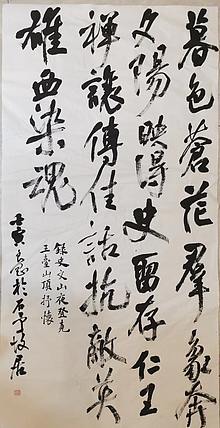 暮色蒼茫羣象奔
夕陽映得史畱存仁王
禪讓傳佳話抗敵英
雄血染魂
錄史文山夜登克
王臺山頂抒懷
壬寅 於石 故居